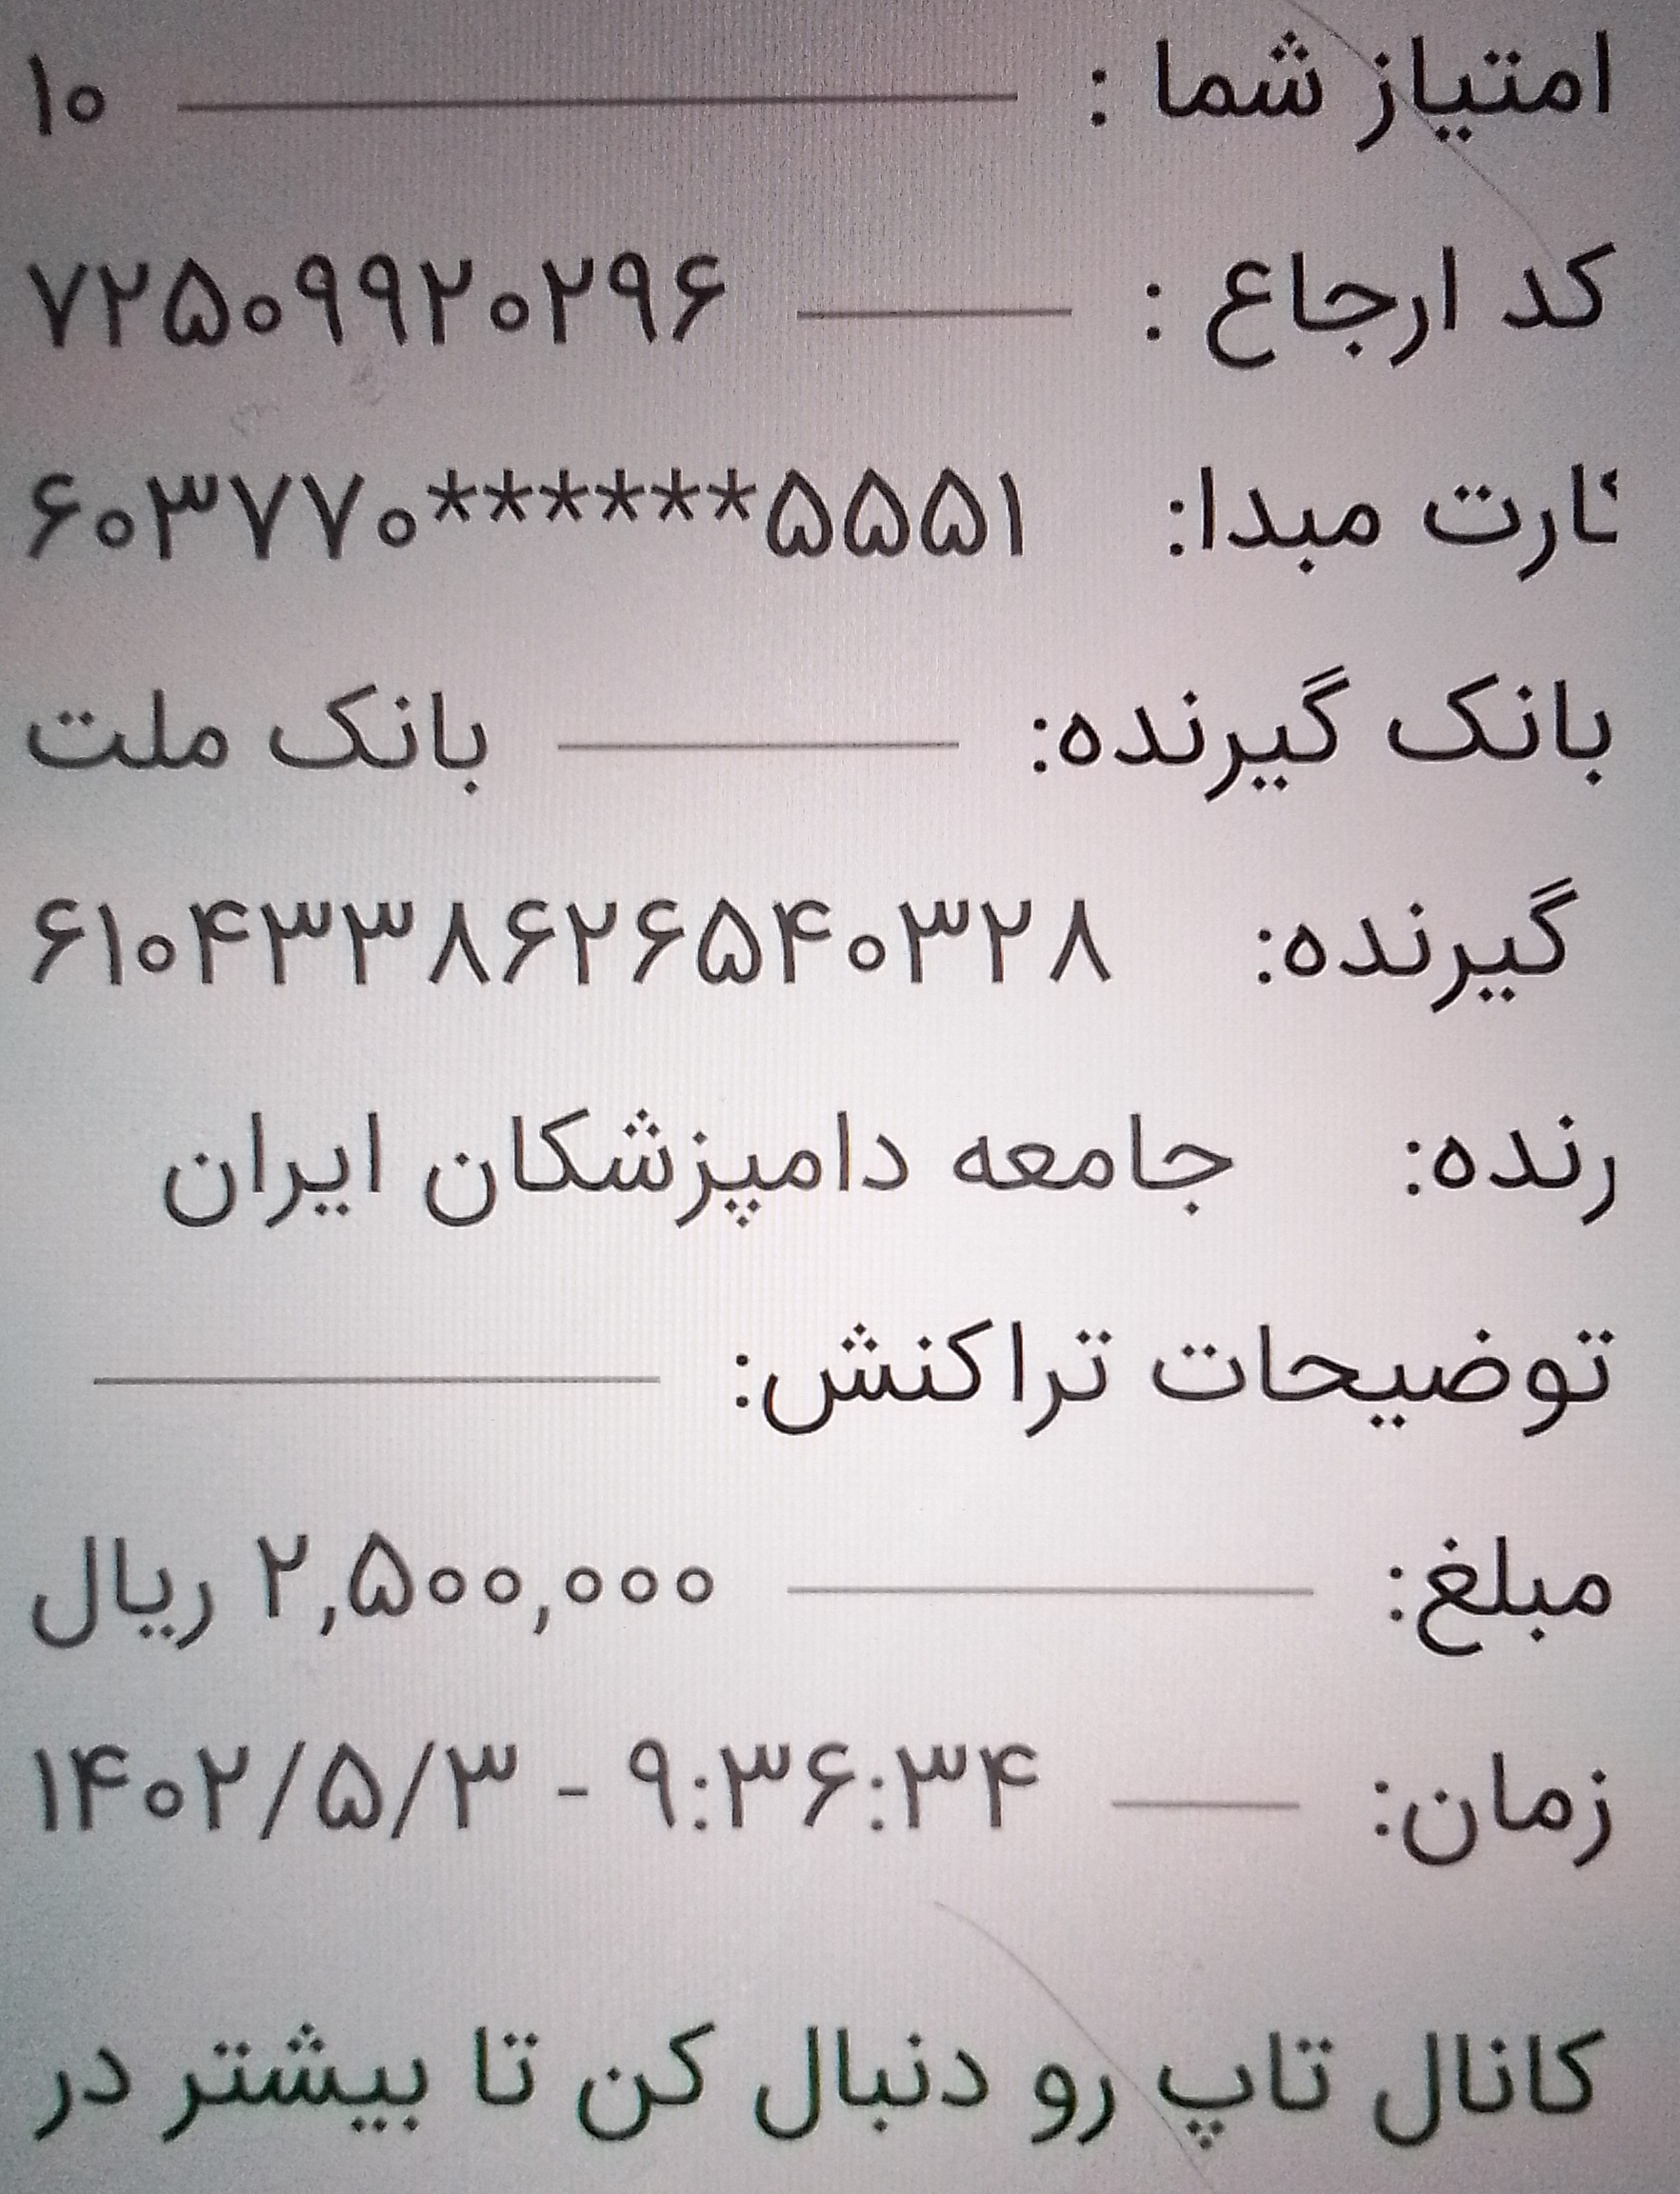 امتیاز شما : ۱۰
کد ارجاع : ۷۲۵۰۹۹۲۰۲۹۶
کارت مبدا: ۶۰۳۷۷۰******۵۵۵۱
بانک گیرنده: بانک ملت
گیرنده: ۶۱۰۴۳۳۸۶۲۶۵۴۰۳۲۸
رنده: جامعه دامپزشکان ایران
توضیحات تراکنش:
مبلغ: ۲,۵۰۰,۰۰۰ ریال
زمان: ۱۴۰۲/۵/۳ - ۹:۳۶:۳۴
کانال تاپ رو دنبال کن تا بیشتر در